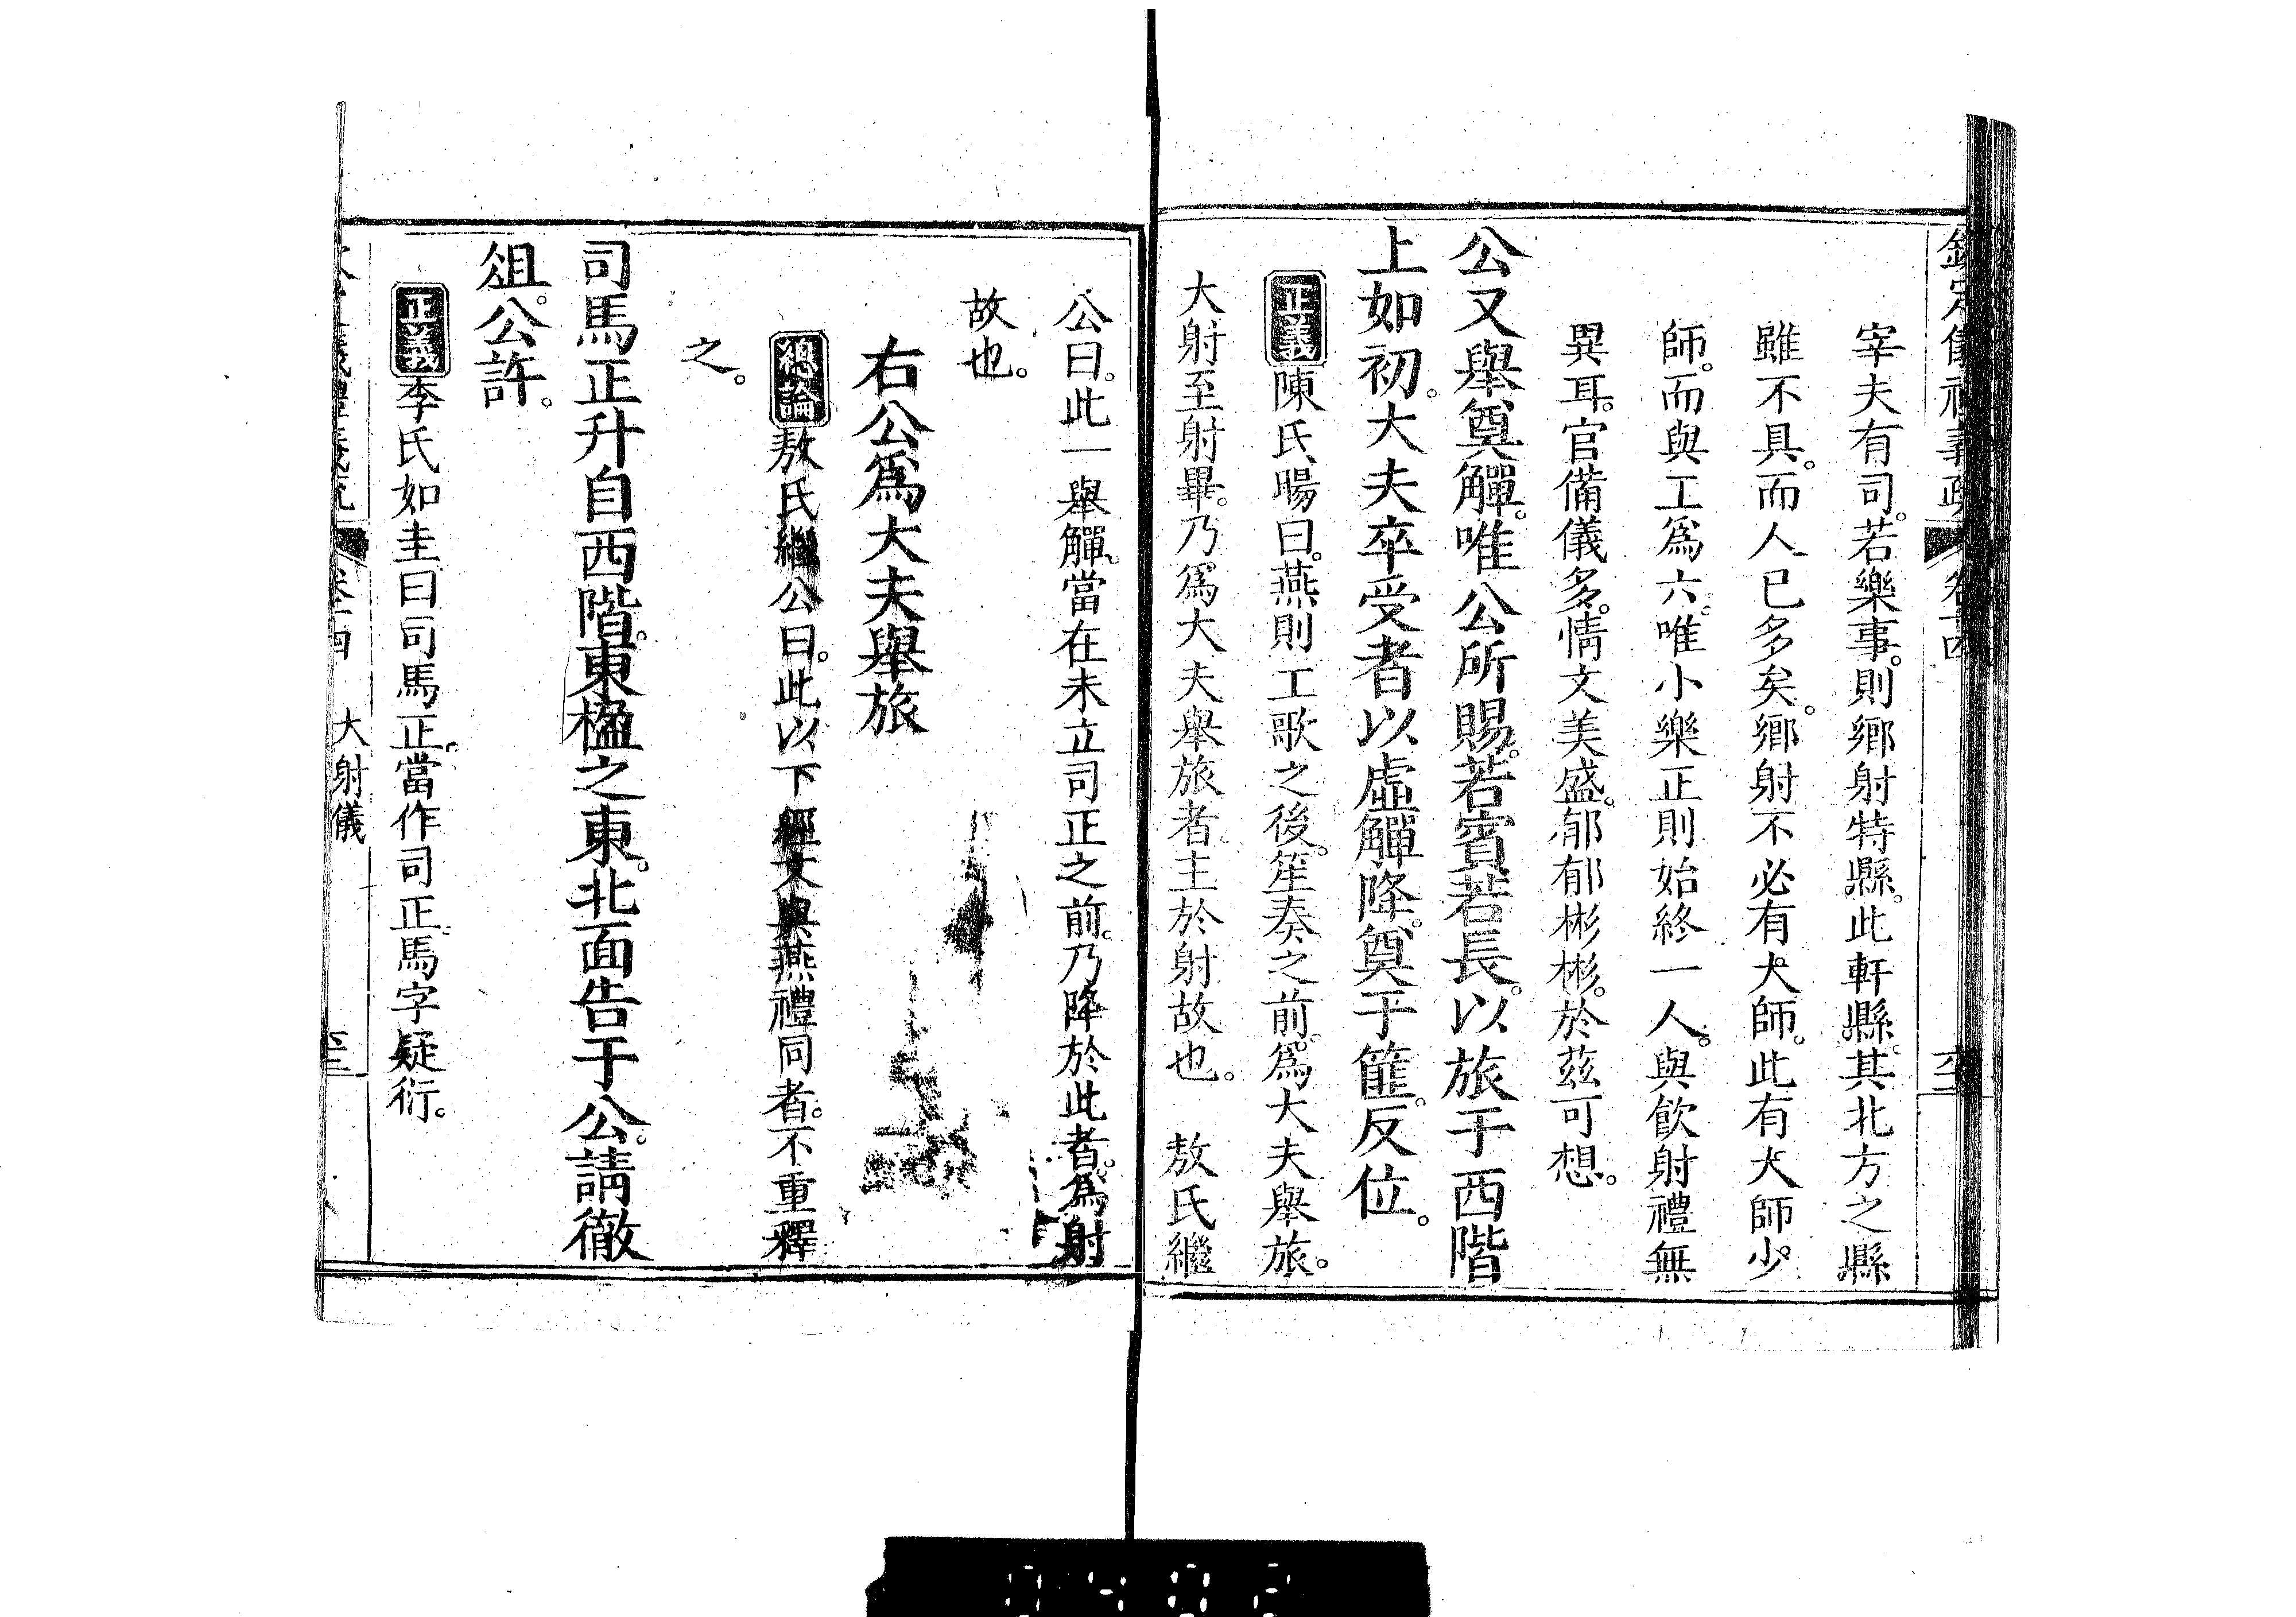 欽定儀禮義疏 卷十四
宰夫有司。若樂事。則鄉射特縣。此軒縣。其北方之縣
雖不具。而人已多矣。鄉射不必有大師。此有大師。少
師。而與工爲六。唯小樂正則始終一人。與飲射禮無
異耳。官備儀多。情文美盛。郁郁彬彬。於茲可想。
公又舉奠觶。唯公所賜。若賓若長。以旅于西階
上如初。大夫卒受者以虛觶降。奠于篚。反位。
正義陳氏暘曰。燕則工歌之後。笙奏之前。爲大夫舉旅。
大射至射畢。乃爲大夫舉旅者主於射故也。 敖氏繼
公曰。此一舉觶。當在未立司正之前。乃降於此者。爲射
故也。
右公爲大夫舉旅
總論敖氏繼公曰。此以下經文與燕禮同者。不重釋
之。
司馬正升自西階。東楹之東。北面告于公。請徹
俎。公許。
正義李氏如圭曰司馬正。當作司正。馬字疑衍。
儀禮義疏 卷十四 大射儀